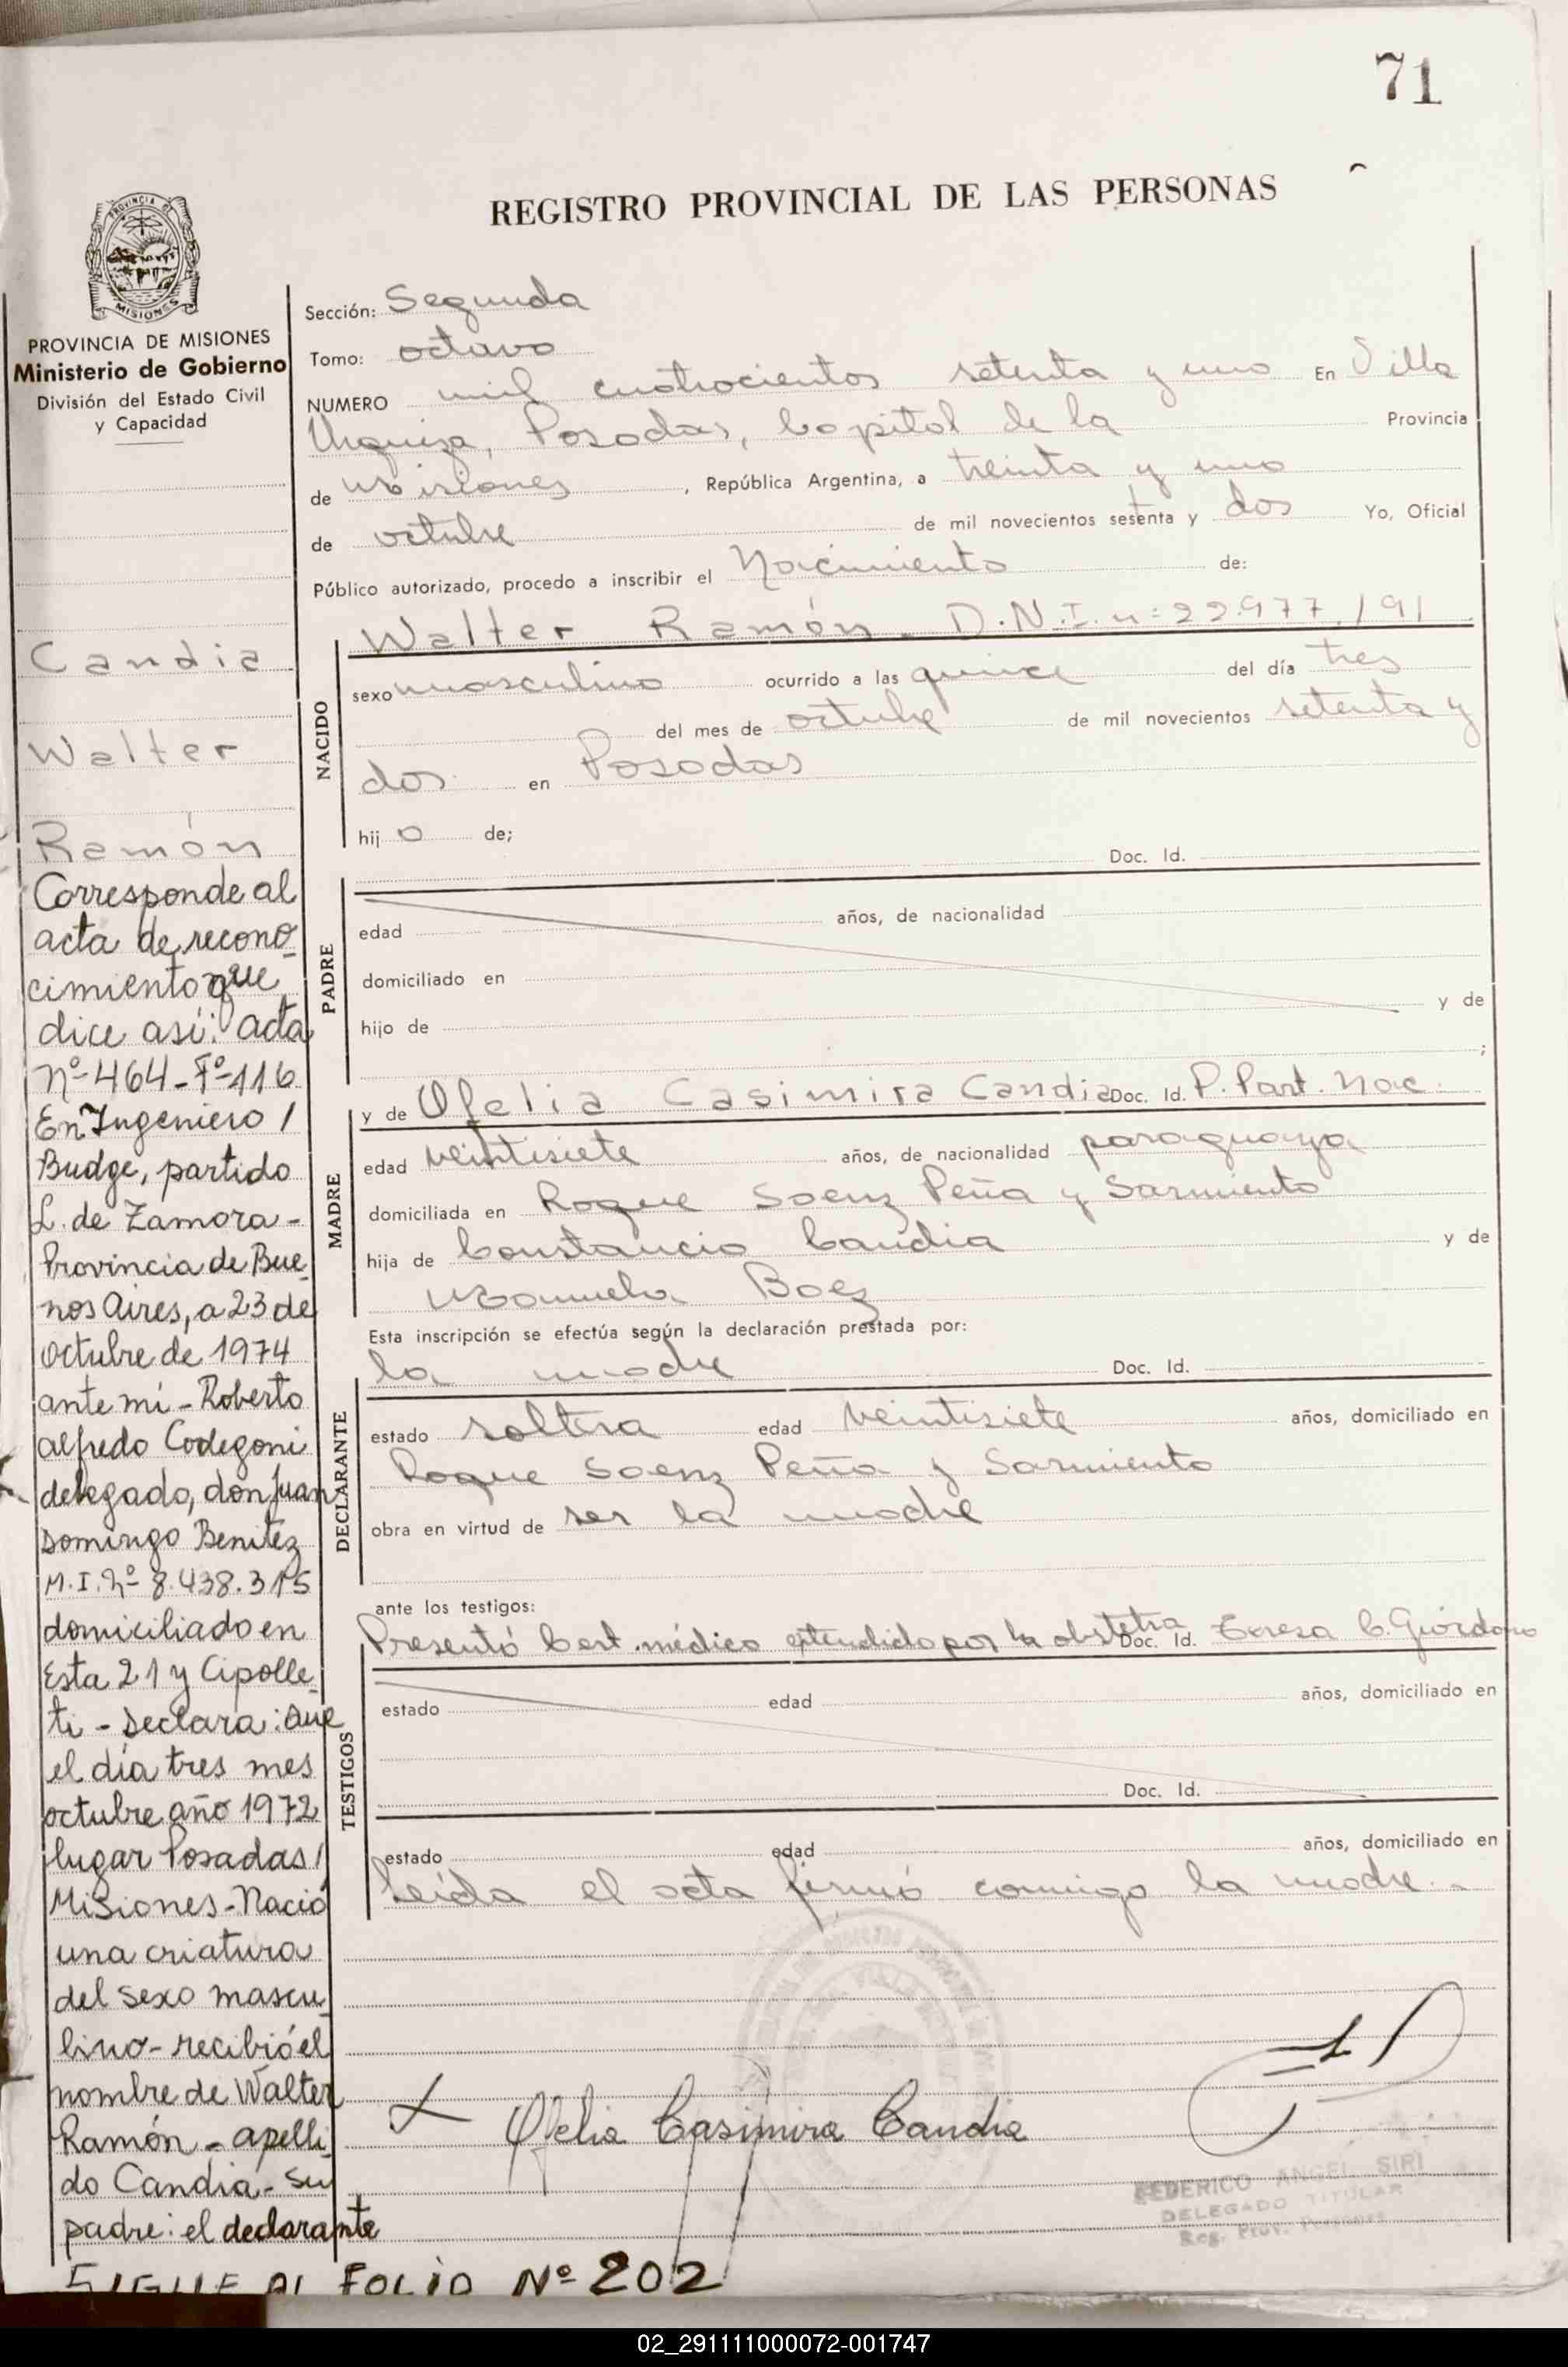 71
REGISTRO PROVINCIAL DE LAS PERSONAS
PROVINCIA DE MISIONES
Ministerio de Gobierno
División del Estado Civil
y Capacidad
Candia
Walter
Ramón
Corresponde al
acta de recono
cimiento que
dice así: acta
Nº 464 - Fº 116
En Ingeniero /
Budge, partido
L. de Zamora -
Provincia de Bue
nos Aires, a 23 de
octubre de 1974
ante mí - Roberto
Alfredo Codegoni
delegado, don Juan
Domingo Benitez
M.I. Nº 8.438.315
domiciliado en
Esta 21 y Cipolle
ti - Declara: Que
el día tres mes
octubre año 1972
lugar Posadas /
Misiones - Nació
una criatura
del sexo mascu
lino - recibió el
nombre de Walter
Ramón - apelli
do Candia - Su
padre: el declarante
SIGUE AL FOLIO Nº 202
Sección: Segunda
Tomo: octavo
NUMERO mil cuatrocientos setenta y uno En Villa
Urquiza, Posadas, Capital de la Provincia
de Misiones, República Argentina, a treinta y uno
de octubre de mil novecientos setenta y dos Yo, Oficial
Público autorizado, procedo a inscribir el Nacimiento de:
NACIDO
Walter Ramón - D.N.I. n: 22.977.191
sexo masculino ocurrido a las quince del día tres
del mes de octubre de mil novecientos setenta y
dos en Posadas
hijo de;
Doc. Id.
PADRE
edad años, de nacionalidad
domiciliado en
hijo de y de
;
MADRE
y de Ofelia Casimira Candia Doc. Id. P. Part. Nac.
edad veintisiete años, de nacionalidad paraguaya
domiciliada en Roque Saenz Peña y Sarmiento
hija de Constancio Candia y de
Manuela Baez
Esta inscripción se efectúa según la declaración prestada por:
la madre Doc. Id.
DECLARANTE
estado soltera edad veintisiete años, domiciliado en
Roque Saenz Peña y Sarmiento
obra en virtud de ser la madre
ante los testigos:
Presentó Cert. médico extendido por la obstetra Doc. Id. Teresa C. Giordano
TESTIGOS
estado edad años, domiciliado en
Doc. Id.
estado edad años, domiciliado en
Leída el acta firmó conmigo la madre.-
Ofelia Casimira Candia
FEDERICO ANGEL SIRI
DELEGADO TITULAR
Reg. Prov. Personas
02_291111000072-001747